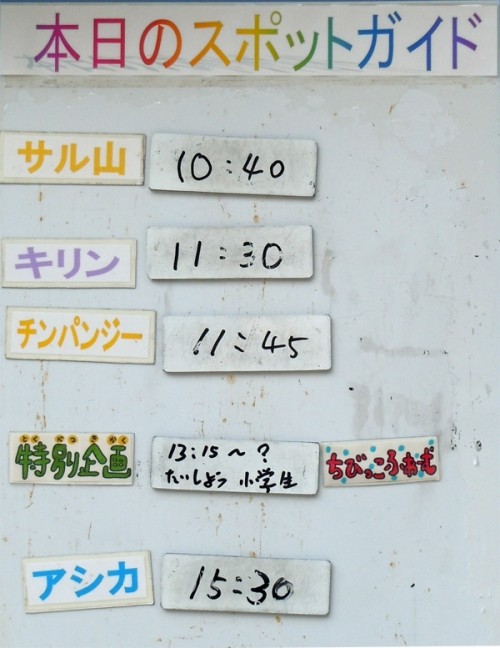 本日のスポットガイド
サル山 10:40
キリン 11:30
チンパンジー 11:45
とくべつきかく
特別企画 13:15～?
たいしょう 小学生
ちびっころぁむ
アシカ 15:30